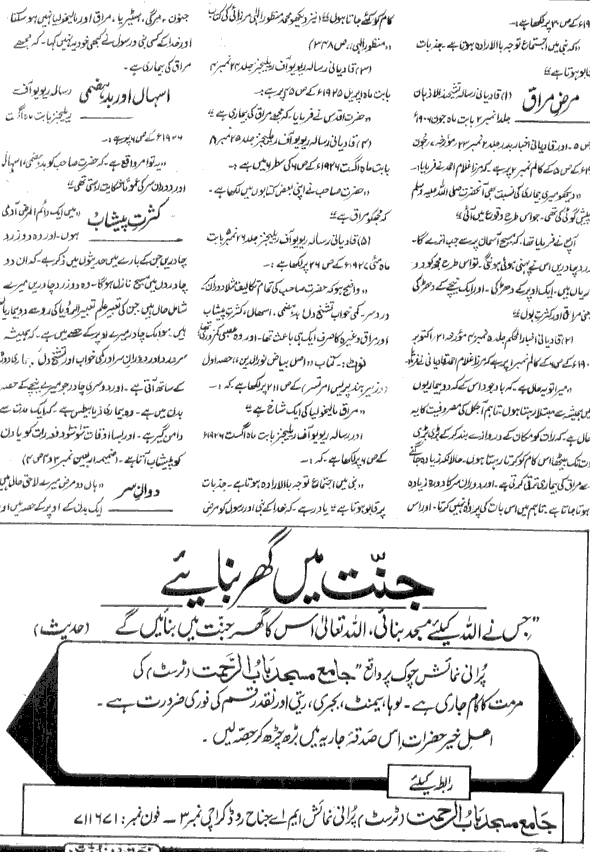 ۱۹۰۶ء کے ص ۳۰ پر لکھا ہے :۔
"کہ نبی میں اجتماع توجہ بالارادہ ہوتا ہے جذبات
قابو ہوتا ہے"
مرضِ مراق
(۱) قادیانی رسالہ تشحیذ الاذہان
جلد نمبر ۲ بابت ماہ جون ۱۹۰۶ء
ص ۵۔ اور قادیانی اخبار بدر جلد ۲ نمبر ۲۳ مؤرخہ ۷ جون
۱۹۰۶ء ص ۵ کے کالم نمبر ۲ پر ہے کہ مرزا غلام احمد نے فرمایا :۔
"دیکھو میری بیماری کی نسبت بھی آنحضرت صلی اللہ علیہ وسلم
پیشگوئی کی تھی۔ جو اس طرح وقوع میں آئی"
آپ نے فرمایا تھا کہ مسیح آسمان پر سے جب اترے گا۔
زرد چادریں اس نے پہنی ہوئی ہونگی۔ تو اس طرح مجھ کو دو
بیماریاں ہیں۔ ایک اوپر کے دھڑ کی۔ اور ایک نیچے کے دھڑ کی
مراق اور کثرتِ بول"
(۲) قادیانی اخبار الحکم جلد ۵ نمبر ۴۰ مؤرخہ ۳۱ اکتوبر
ص ۶ کے کالم نمبر ۱ پر ہے کہ مرزا غلام احمد قادیانی نے فرمایا
"میرا تو یہ حال ہے کہ باوجود اس کے کہ دو بیماریوں
میں ہمیشہ سے مبتلا رہتا ہوں تاہم آجکل کی مصروفیت کا یہ
حال ہے کہ رات کو مکان کے دروازے بند کر کے بڑی بڑی
رات تک بیٹھا اس کام کو کرتا رہتا ہوں۔ حالانکہ زیادہ جاگنے
سے مراق کی بیماری ترقی کرتی ہے۔ اور دوران سر کا دورہ زیادہ
ہوتا جاتا ہے۔ تاہم میں اس بات کی پرواہ نہیں کرتا۔ اور اس
کام کو کئے جاتا ہوں" نیز دیکھو محمد منظور الٰہی مرزائی کی کتاب
"منظور الٰہی" ص ۳۴۸)
(۳) قادیانی رسالہ ریویو آف ریلیجنز جلد ۲۴ نمبر ۴
بابت ماہ اپریل ۱۹۲۵ء ص ۵ پر ہے :۔
"حضرت اقدس نے فرمایا کہ مجھے مراق کی بیماری ہے"
(۴) قادیانی رسالہ ریویو آف ریلیجنز جلد ۲۵ نمبر ۸
بابت ماہ اگست ۱۹۲۶ء ص ۶ کی سطر ۶ میں ہے :۔
"حضرت صاحب نے اپنی بعض کتابوں میں لکھا ہے۔
کہ مجھ کو مراق ہے"
(۵) قادیانی رسالہ ریویو آف ریلیجنز جلد ۲۶ نمبر ۵ بابت
ماہ مئی ۱۹۲۷ء کے ص ۲۶ پر لکھا ہے :۔
"واضح ہو کہ حضرت صاحب کی تمام تکالیف مثلاً دوران
سر۔ درد سر۔ کمی خواب تشنج دل۔ بدہضمی۔ اسہال، کثرت پیشاب
اور مراق وغیرہ کا صرف ایک ہی باعث تھا۔ اور وہ عصبی کمزوری تھی
نوٹ :۔ کتاب "اصل بیاض نور الدین"، حصہ اول
(وزیر ہند پریس امرتسر) کے ص ۲۱۱ پر لکھا ہے کہ :۔
"مراق مالیخولیا کی ایک شاخ ہے"
اور رسالہ ریویو آف ریلیجنز بابت ماہ اگست ۱۹۲۶ء
کے ص ۶ پر لکھا ہے۔ کہ :۔
"نبی میں اجتماع توجہ بالارادہ ہوتا ہے۔ جذبات
پر قابو ہوتا ہے" یاد رہے کہ خدا کے نبی اور رسول کو مرض
جنون، مرگی، ہسٹیریا، مراق اور مالیخولیا نہیں ہو سکتا
اور خدا کے کسی نبی و رسول نے کبھی خود یہ نہیں کہا۔ کہ مجھے
مراق کی بیماری ہے۔
اسہال اور بدہضمی
رسالہ ریویو آف
ریلیجنز بابت ماہ اگست
۱۹۲۶ء ص ۶ پر ہے :۔
"یہ تو امر واقع ہے، کہ حضرت صاحب کو بدہضمی، اسہال
اور دوران سر کی عموماً شکایت رہتی تھی"
کثرتِ پیشاب
"میں ایک دائم المرض آدمی
ہوں۔ اور وہ دو زرد
چادریں جن کے بارے میں حدیثوں میں ذکر ہے۔ کہ ان دو
چادروں میں مسیح نازل ہوگا۔ وہ دو زرد چادریں میرے
شامل حال ہیں۔ جن کی تعبیر علم تعبیر الرؤیا کی رو سے دو بیماریاں
ہیں۔ سو ایک چادر میرے اوپر کے حصے میں ہے۔ کہ ہمیشہ
سر درد اور دوران سر اور کمی خواب اور تشنج دل کی بیماری دورہ
کے ساتھ آتی ہے۔ اور دوسری چادر جو میرے نیچے کے حصہ
بدن میں ہے۔ وہ بیماری ذیابیطس ہے۔ کہ ایک مدت سے
دامن گیر ہے۔ اور بسا اوقات سو سو دفعہ رات کو یا دن
کو پیشاب آتا ہے۔ (ضمیمہ اربعین نمبر ۳ و ۴ ص ۴)
دورانِ سر
"ہاں دو مرض میرے لاحق حال ہیں
ایک بدن کے اوپر کے حصہ میں اور
جنّت میں گھر بنائیے
"جس نے اللہ کیلئے مسجد بنائی، اللہ تعالیٰ اس کا گھر جنّت میں بنائیں گے" (حدیث)
پُرانی نمائش چوک پر واقع "جامع مسجد بابُ الرّحمت (ٹرسٹ) کی
مرمت کا کام جاری ہے۔ لوہا، سیمنٹ، بجری، ریتی اور نقد رقم کی فوری ضرورت ہے۔
اھلِ خیر حضرات اِس صدقۂ جاریہ میں بڑھ چڑھ کر حصّہ لیں۔
رابطہ کیلئے
جامع مسجد بابُ الرحمت (ٹرسٹ) پُرانی نمائش ایم اے جناح روڈ کراچی نمبر ۳۔ فون نمبر: ۷۱۱۶۷۱